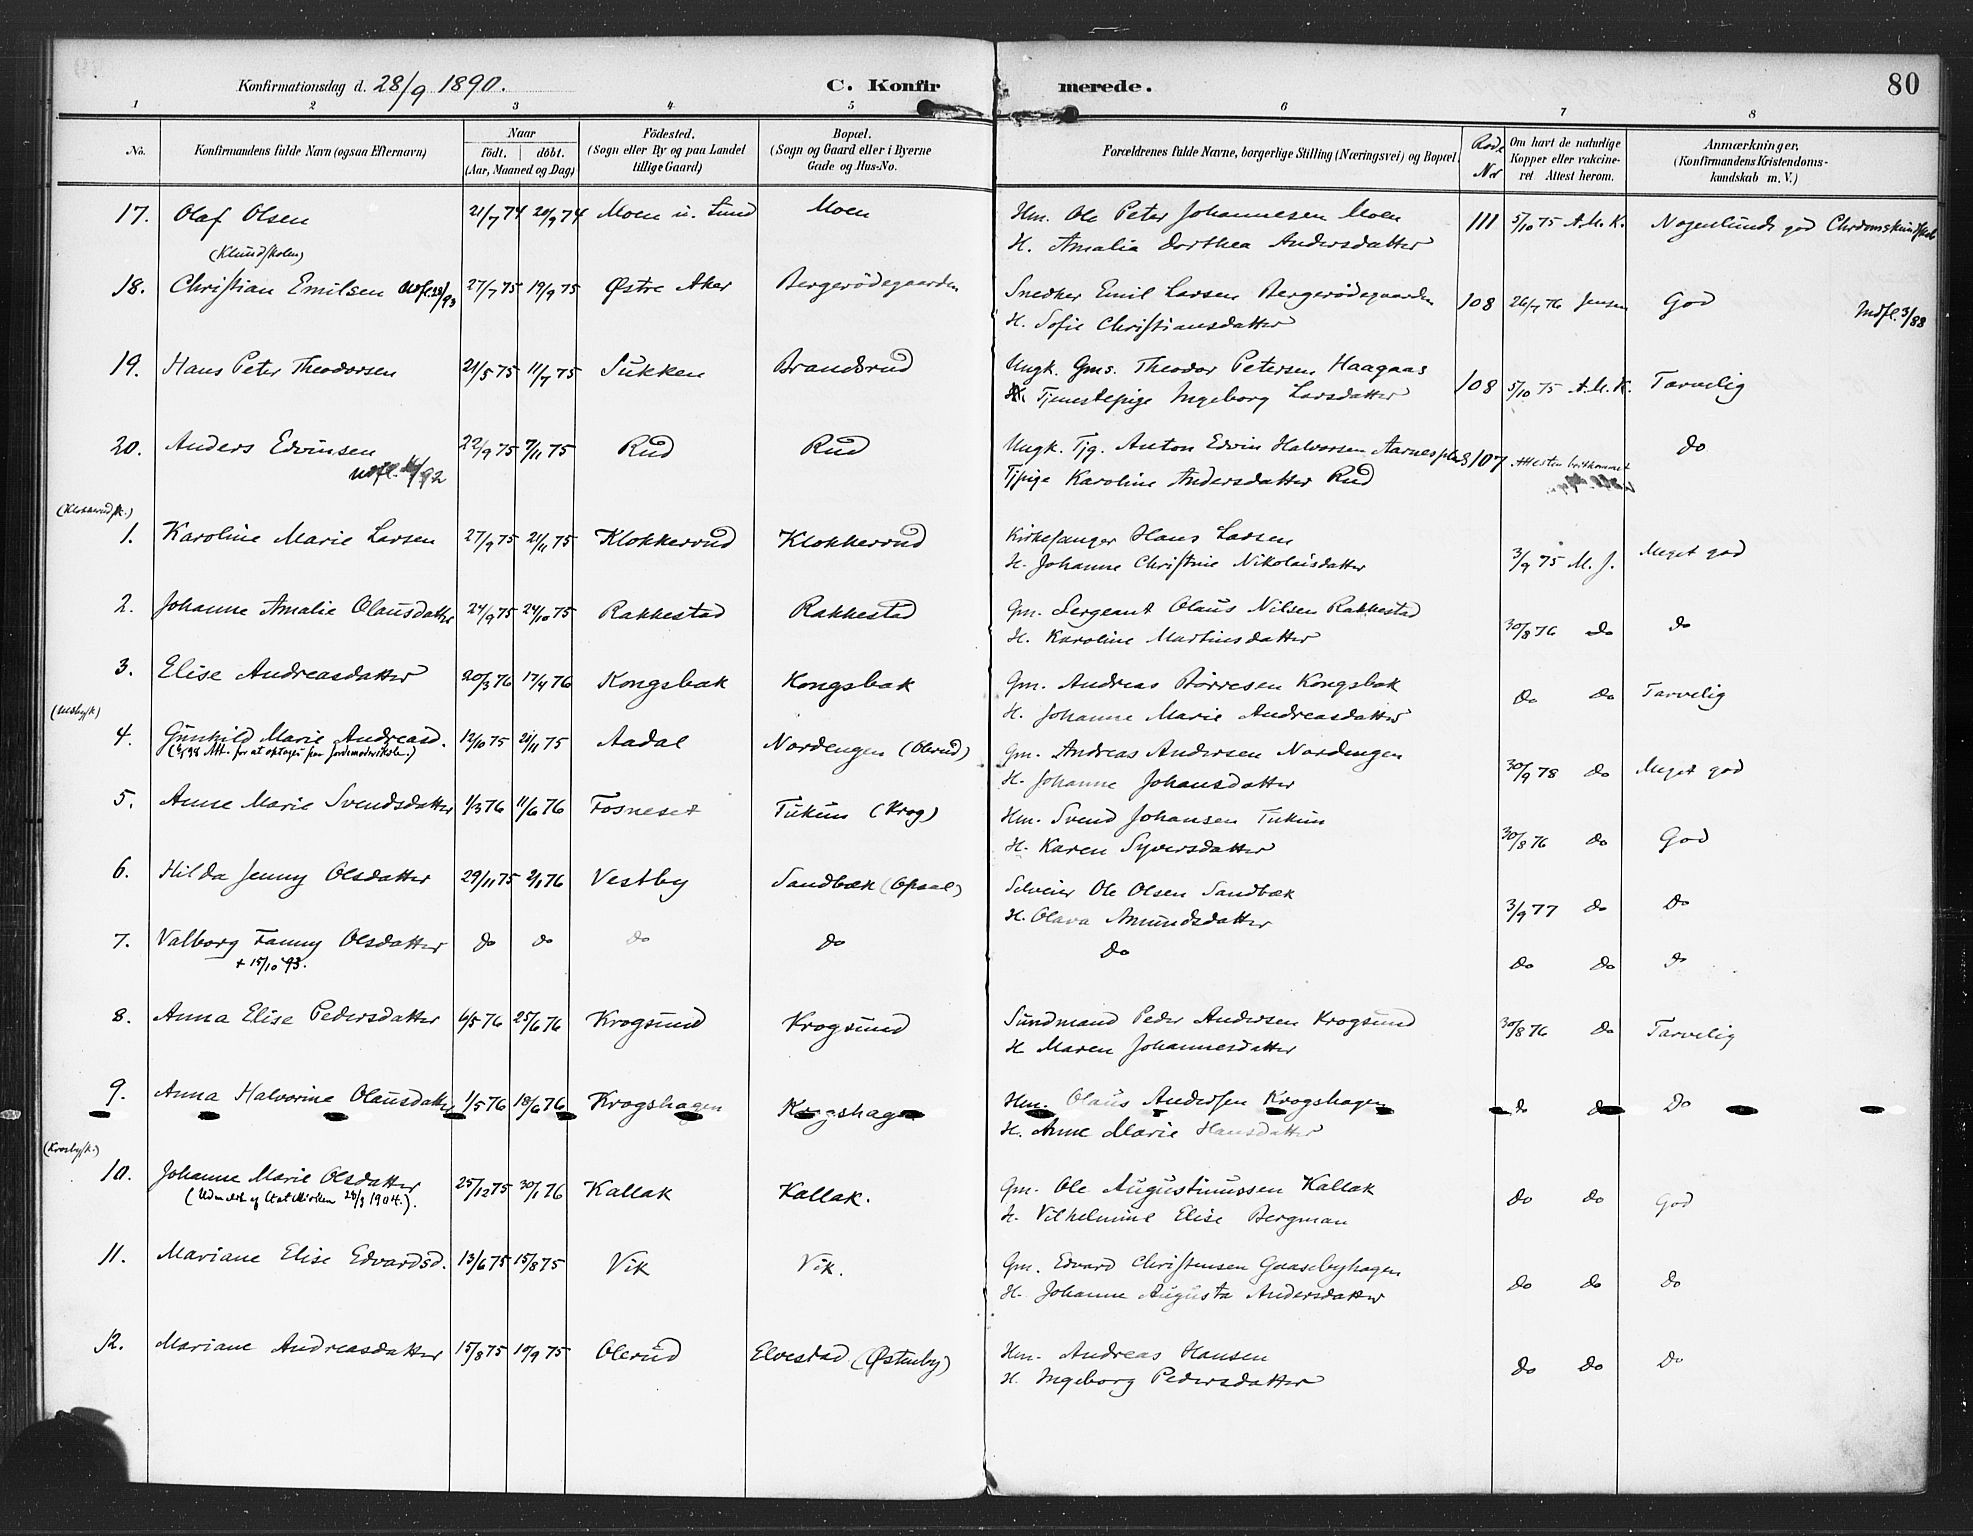 80
Konfirmationsdag d. 28/9 1890. C. Konfirmerede.
1 2 3 4 5 6 7 8
No. Konfirmandens fulde Navn (ogsaa Efternavn) Naar födt. döbt. (Aar, Maaned og Dag) Födested. (Sogn eller By og paa Landet tillige Gaard) Bopæl. (Sogn og Gaard eller i Byerne Gade og Hus-No. Forældrenes fulde Navne, borgerlige Stilling (Næringsvei) og Bopæl. Rode Nr Om havt de naturlige Kopper eller vakcineret. Attest herom. Anmærkninger, (Konfirmandens Kristendomskundskab m. V.)
17. Olaf Olsen 21/7 74 20/9 74 Moen u. Lund Moen Hm. Ole Peter Johannesen Moen 111 5/10 75 A.M.K. Nogenlunde god Chrdomskundskab
H. Amalia Dorthea Andersdatter
18. Christian Emilsen 27/7 75 19/9 75 Østre Aker Bergerödegaarden Snedker Emil Larsen Bergerödegaarden 108 26/7 76 Jensen God Indfl. 3/88
H. Sofie Christiansdatter
19. Hans Peter Theodorsen 21/5 75 11/7 75 Sukken Brandsrud Ungk. Gms. Theodor Petersen Haagaas 108 5/10 75 A.M.K. Tarvelig
Tjenestepige Ingeborg Larsdatter
20. Anders Edvinsen 22/9 75 7/11 75 Rud Rud Ungk. Tjg. Anton Edvin Halvorsen 107 Attesten bortkommet do
Tjpige Karoline Andersdatter Rud
(Klokkerudsk.)
1. Karoline Marie Larsen 27/9 75 21/11 75 Klokkerud Klokkerud Kirkesanger Hans Larsen 3/9 75 M. J. Meget god
H. Johanne Christine Nikolaisdatter
2. Johanne Amalie Olausdatter 24/9 75 24/10 75 Rakkestad Rakkestad Gm. Sergeant Olaus Nilsen Rakkestad 30/8 76 do do
H. Karoline Martinsdatter
3. Elise Andreasdatter 20/3 76 17/4 76 Kongsbak Kongsbak Gm. Andreas Börresen Kongsbak do do Tarvelig
H. Johanne Marie Andreasdatter
4. Gunhild Marie Andreasd. 12/10 75 21/11 75 Aadal Nordengen (Olerud) Gm. Andreas Andersen Nordengen 30/9 78 do Meget god
H. Johanne Johansdatter
5. Anne Marie Svendsdatter 1/3 76 11/6 76 Fosneset Tukun (Krog) Hm. Svend Johansen Tukun 30/8 76 do God
H. Karen Syversdatter
6. Hilda Jenny Olsdatter 29/11 75 2/1 76 Vestby Sandbæk (Opaal) Selveier Ole Olsen Sandbæk 3/9 77 do do
H. Olava Amundsdatter
7. Valborg Fanny Olsdatter do do do do do do do do
+ 15/10 93.
8. Anna Elise Pedersdatter 6/5 76 25/6 76 Krogsund Krogsund Sundmand Peder Andersen Krogsund 30/8 76 do Tarvelig
H Maren Johannesdatter
9. Anna Halvorine Olausdatter 1/5 76 18/6 76 Krogshagen Krogshagen Hm. Olaus Andersen Krogshagen do do Do
H. Anne Marie Hansdatter
(Krosbysk.)
10. Johanne Marie Olsdatter 25/12 75 30/1 76 Kallak Kallak. Gm. Ole Augustinussen Kallak do do God
H. Vilhelmine Elise Bergman
11. Mariane Elise Edvardsd. 13/6 75 15/8 75 Vik Vik. Gm. Edvard Christensen Gaasebyhagen do do Do
H. Johanne Augusta Andersdatter
12. Mariane Andreasdatter 15/8 75 19/9 75 Olerud Elvestad (Østenby) Hm. Andreas Hansen do do Do
H. Ingeborg Pedersdatter